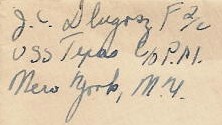 J. C. Dlugosz F 2/c
USS Texas C/o P.M.
New York, N.Y.